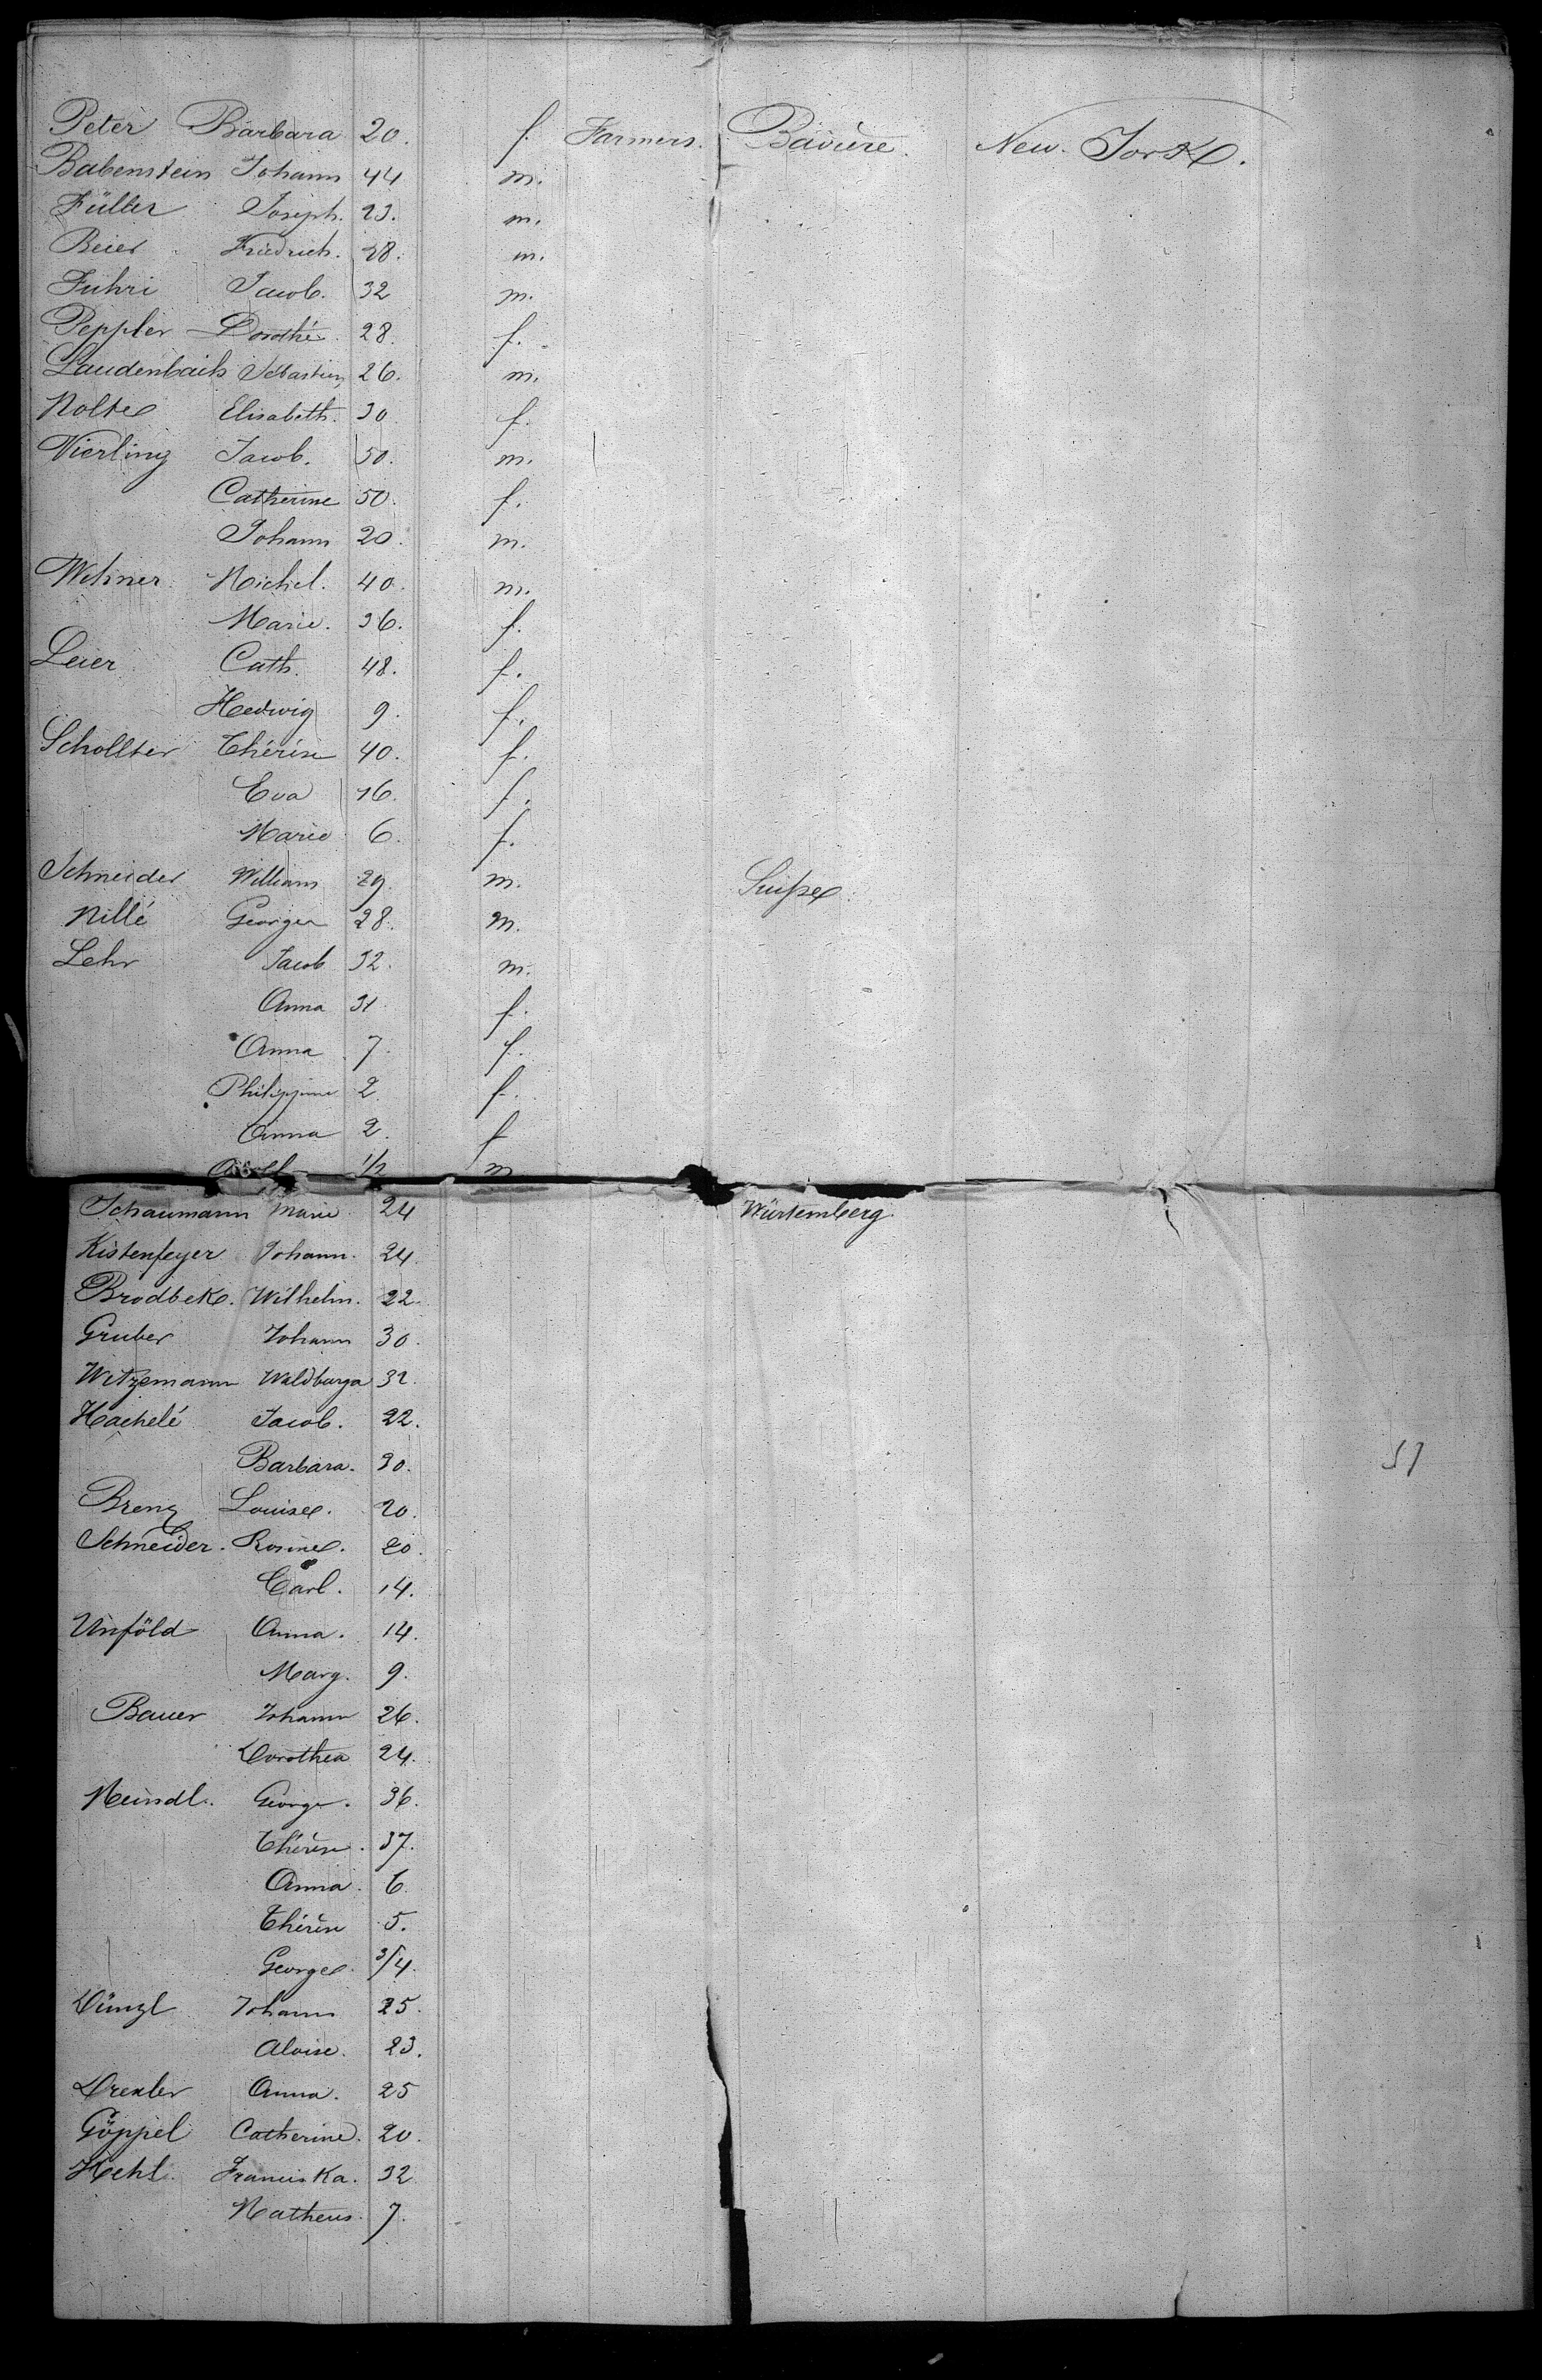 Peter Barbara 20. f. Farmers. Bavière. New-York.
Babenstein Johann 44 m.
Füller Joseph. 23. m.
Beier Friedrich. 28. m.
Fuhri Jacob. 32 m.
Peppler Dorothé. 28. f.
Laudenbach Sébastien 26. m.
Nolte Elisabeth. 30. f.
Vierling Jacob. 50. m.
Catherine 50. f.
Johann 20. m.
Wehner Michel. 40. m.
Marie. 36. f.
Leier Cath. 48. f.
Hedwig 9. f.
Schollter Thérése 40. f.
Eva 16. f.
Marie 6. f.
Schneider William 29. m. Suisse.
Nillé George 28. m.
Lehr Jacob 32. m.
Anna 31 f.
Anna 7. f.
Philippine 2. f.
Anna 2. f
1/2 m
Schaumann Marie 24 Würtemberg
Kistenfeger Johann. 24.
Brodbek. Wilhelm. 22.
Gruber Johann 30.
Witzemann Waldburga 32.
Hachelé Jacob. 22.
Barbara. 30.
Brenz Louise. 20.
Schneider. Rosine. 20.
Carl. 14.
Unföld Anna. 14.
Marg. 9.
Bauer Johann 26.
Dorothea 24.
Meindl. George. 36.
Thérèse. 37.
Anna. 6.
Thérèse 5.
George. 3/4.
Dünzl Johann 25.
Aloise. 23.
Drexler Anna. 25
Göppel Catherine. 20.
Hehl. Franciska. 32
Matheus. 7.